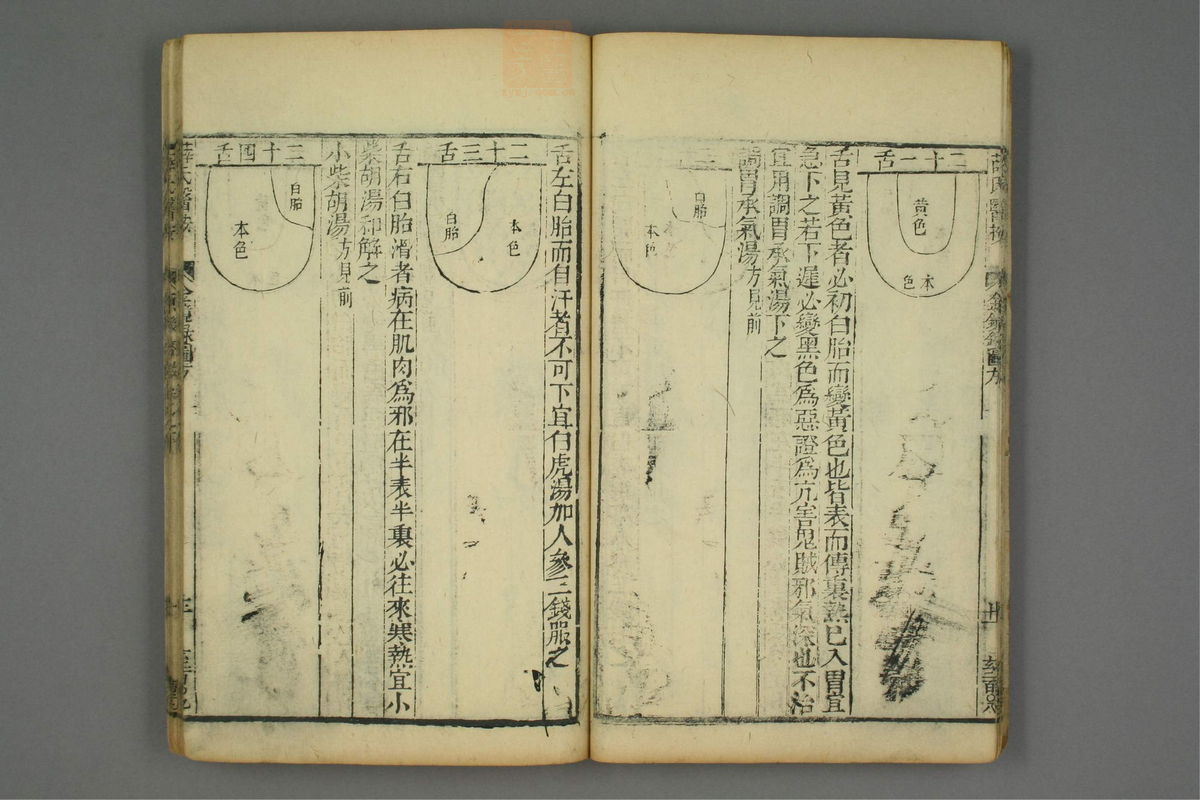 二十一舌
黃色
本色
舌見黃色者必初白胎而變黃色也皆表而傳裏熱已入胃宜
急下之若下遲必變黑色爲惡證爲亢害鬼賊邪氣深也不治
宜用調胃承氣湯下之
調胃承氣湯方見前
二
白胎
本色
舌左白胎而自汗者不可下宜白虎湯加人參三錢服之
二十三舌
本色
白胎
舌右白胎滑者病在肌肉爲邪在半表半裏必往來寒熱宜小
柴胡湯和解之
小柴胡湯方見前
二十四舌
白胎
本色
薛氏醫按